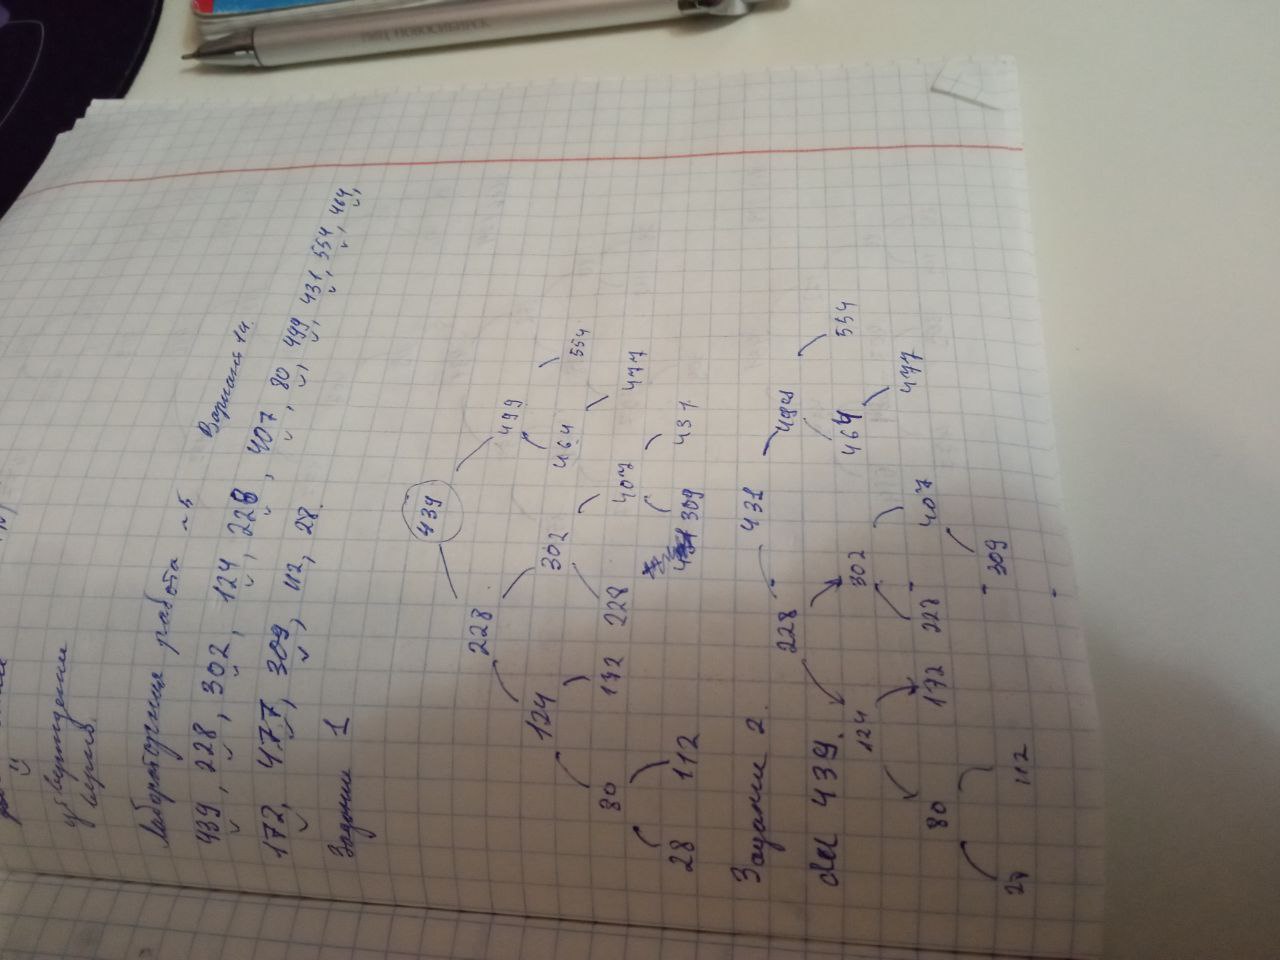 утверждение
верно.
Лабораторная работа ~5
Вариант 14.
439, 228, 302, 124, 228, 407, 80, 499, 431, 554, 464,
172, 477, 309, 112, 28.
Задание 1
439
228 499
124 302 464 554
80 172 228 407 477
28 112 309 431
Задание 2.
431
228 499
del 439.
124 302 464 554
80 172 228 407 477
28 112 309